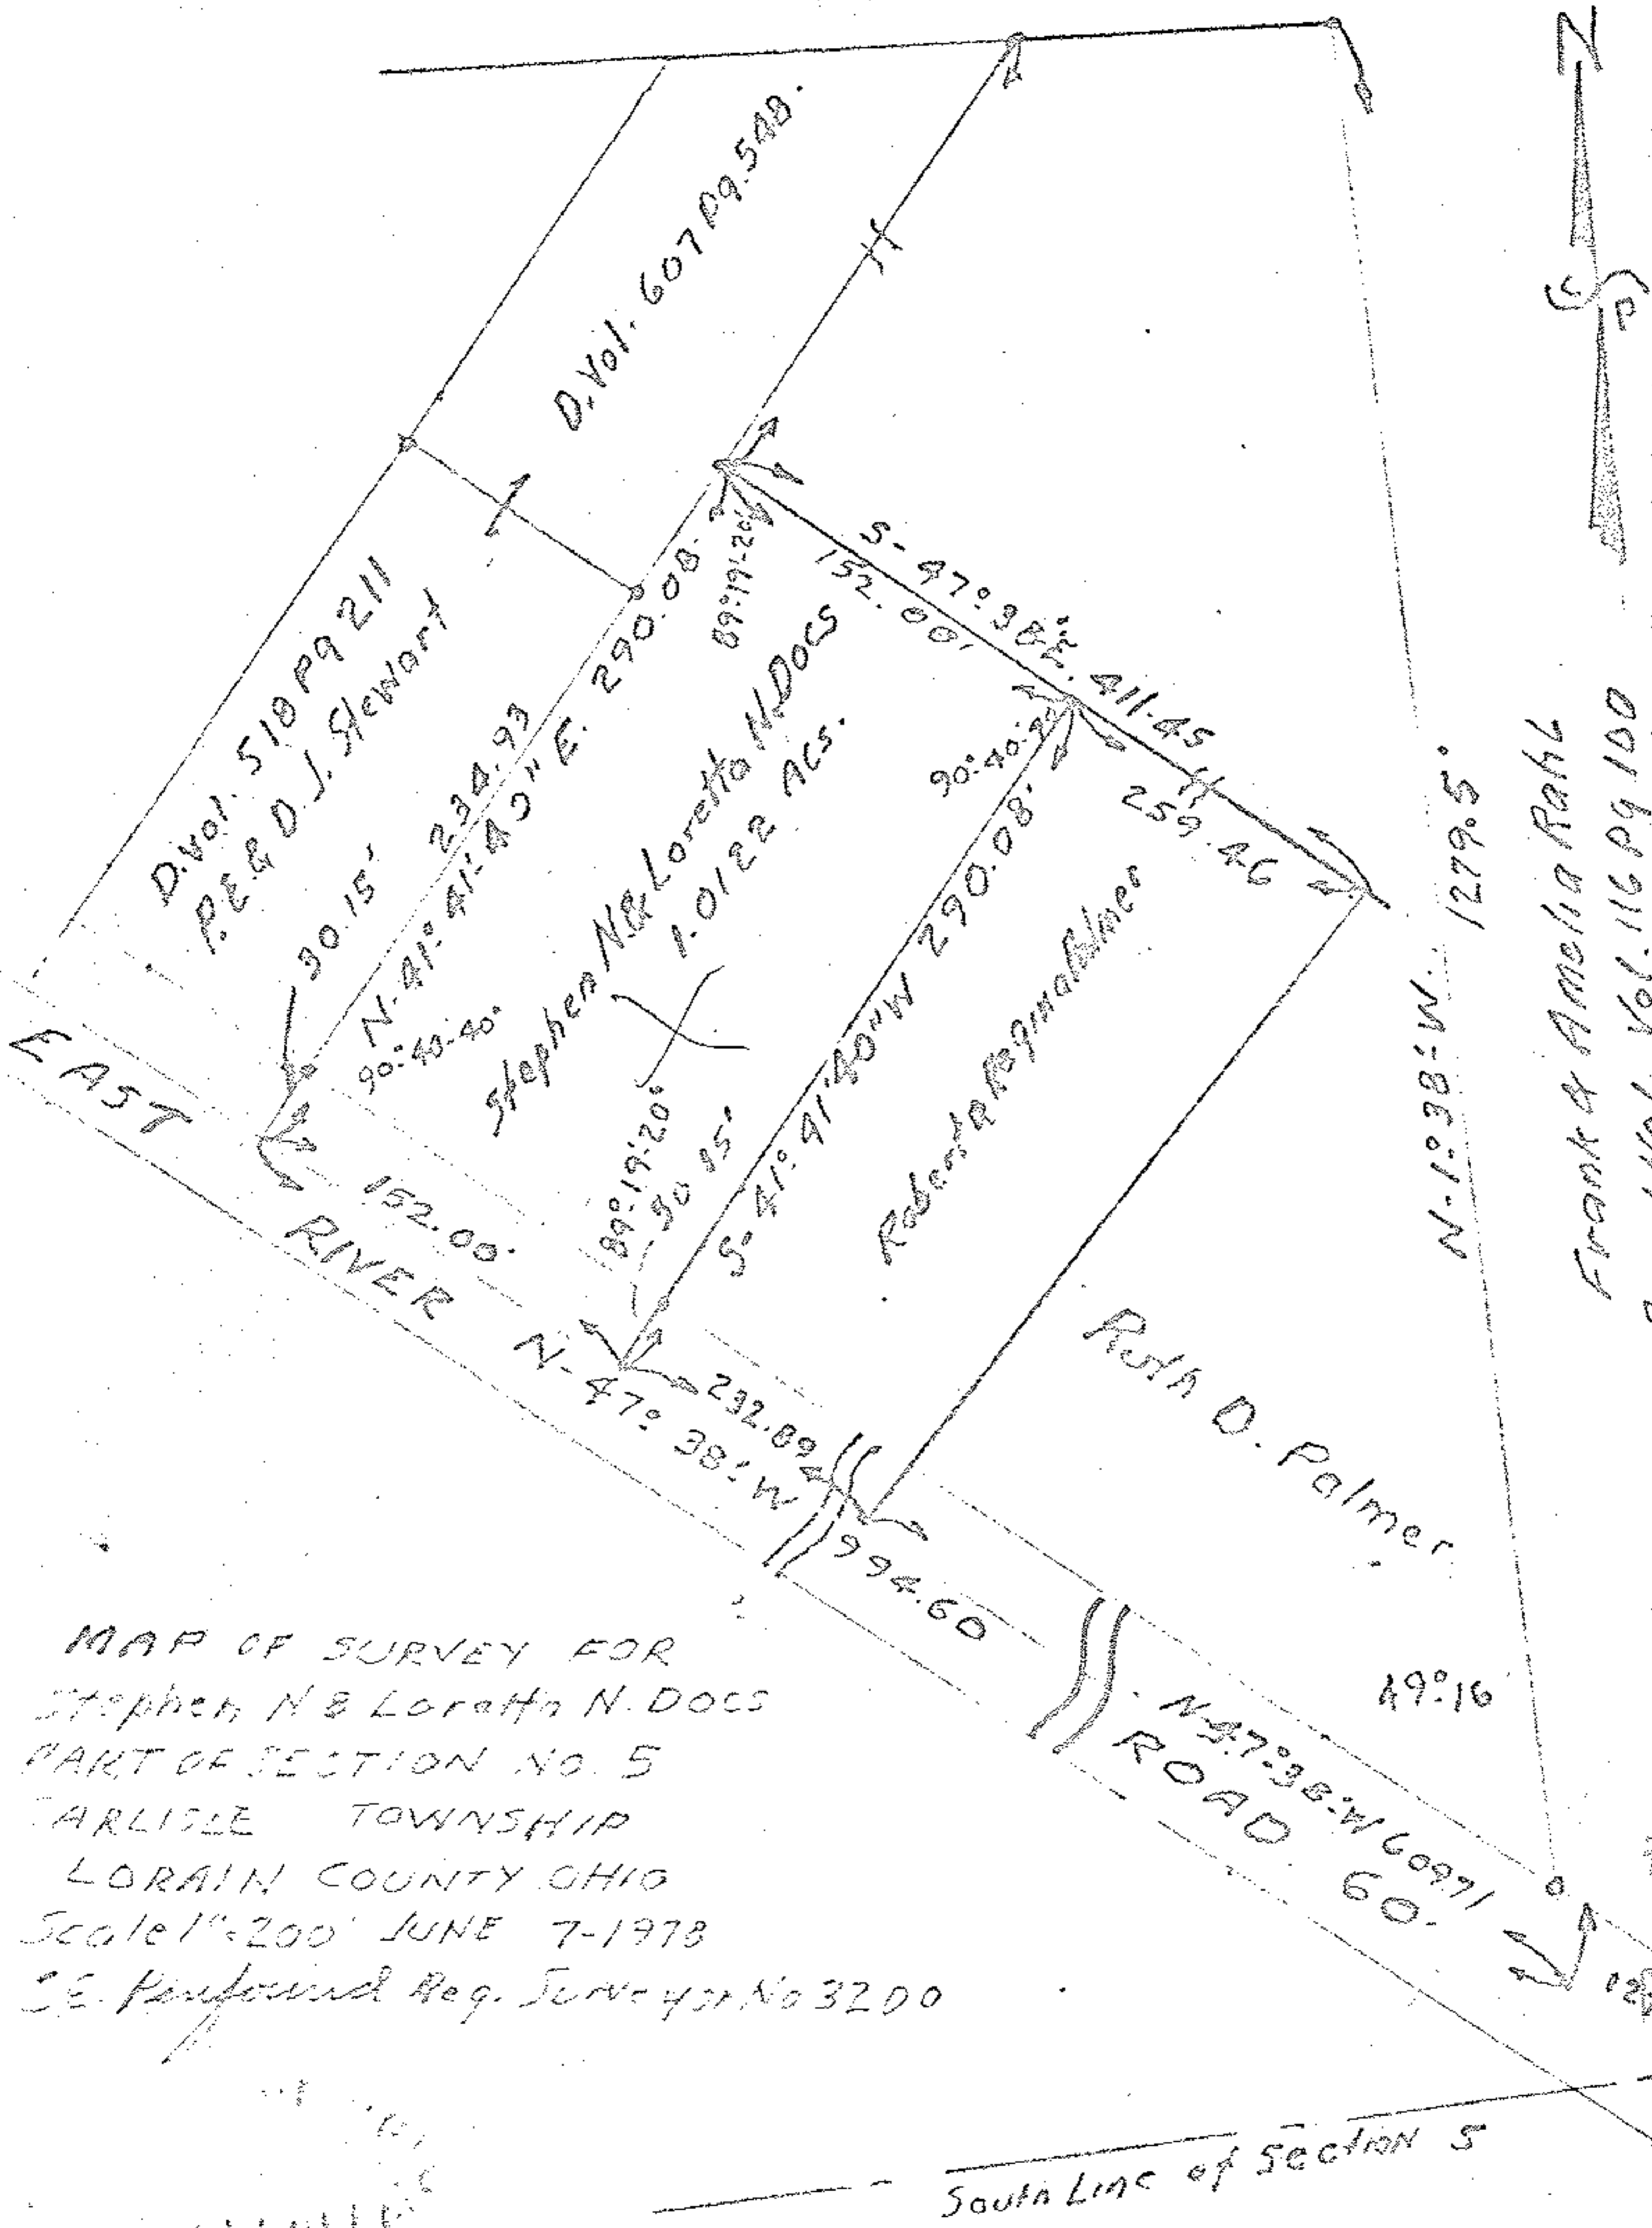 N
D. Vol. 607 Pg. 548.
D. Vol. 518 Pg 211
P.E. & D.J. Stewart
30.15'
234.93
N-41°-41'-40"E. 290.08'
90°-40'-40"
89°-19'-20"
Stephen N. & Loretta N. DOCS
1.0122 Acs.
S-47°-38'-E. 411.45
152.00'
259.46
90°-40'
S-41°-41'-40"W 290.08'
89°-19'-20"
30.15'
Robert & Regina Palmer
Ruth D. Palmer
N-1°-38'-W. 1279.5'
Frank & Amelia Rahl
Vol. 116 Pg 100
EAST RIVER ROAD 60'
152.00'
N-47°-38'-W
232.89
994.60
49°16'
N-47°-38'-W 609.71
MAP OF SURVEY FOR
Stephen N & Loretta N. DOCS
PART OF SECTION NO. 5
CARLISLE TOWNSHIP
LORAIN COUNTY OHIO
Scale 1"=200' JUNE 7-1978
Reg. Surveyor No 3200
South Line of Section 5